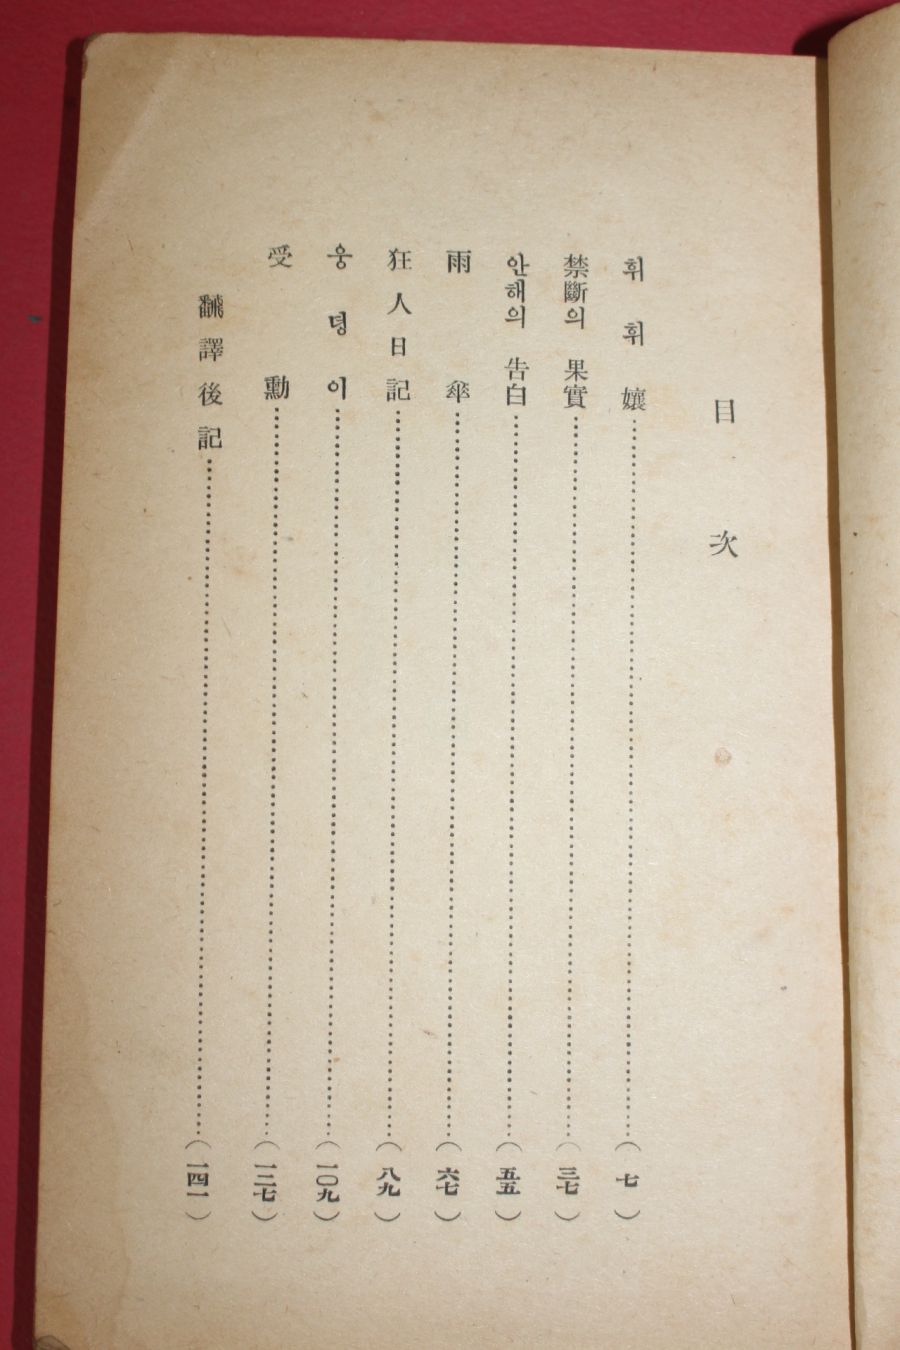 目次
휘휘孃……(七)
禁斷의 果實……(三七)
안해의 告白……(五五)
雨傘……(六七)
狂人日記……(八九)
웅뎡이……(一〇九)
受勳……(一二七)
飜譯後記……(一四一)